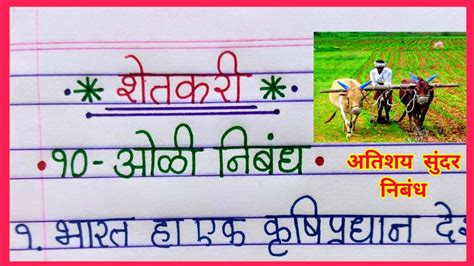 शेतकरी
१०-ओळी निबंध
अतिशय सुंदर
निबंध
१. भारत हा एक कृषिप्रधान